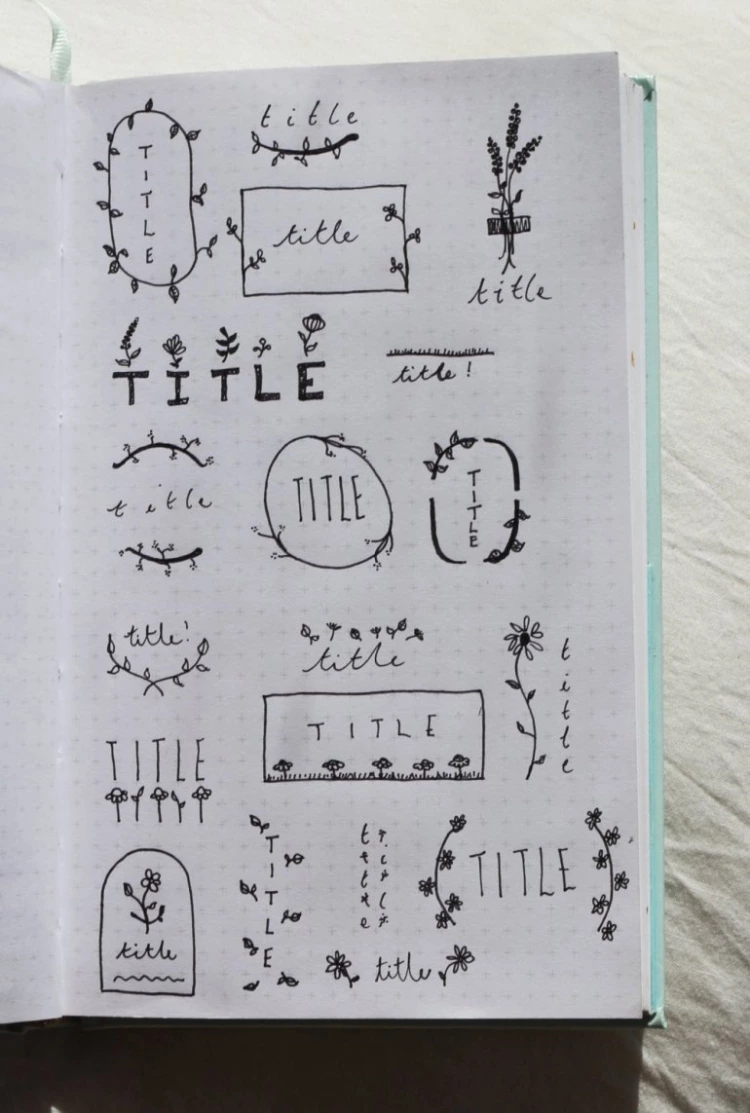 TITLE
title
title
title
TITLE
title!
title
TITLE
TITLE
title!
title
title
TITLE
TITLE
TITLE
TITLE
title
title